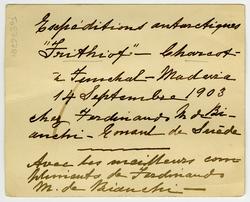 Expéditions antarctiques
"Frithiof" — Charcot
à Funchal — Madeira
14 Septembre 1903
chez Ferdinando M de Bi-
anchi — Consul de Suède
Avec les meilleurs com
pliments de Ferdinando
M. de Bianchi —